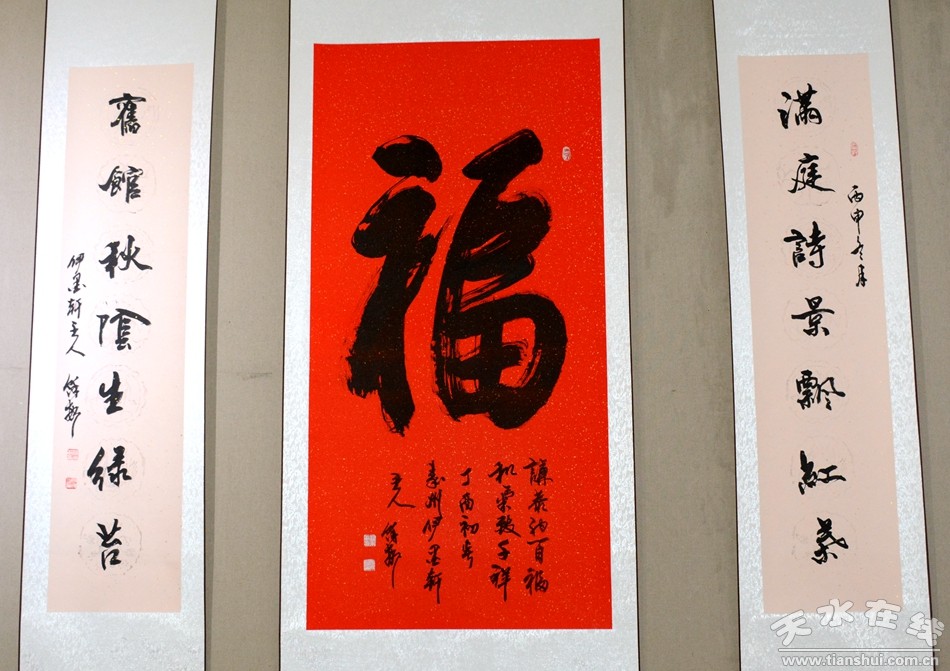 滿庭詩景飄紅葉
丙申冬月
福
謙恭納百福
和乐致千祥
丁酉初春
秦州伊墨軒
主人
舊館秋陰生绿苔
伊墨軒主人
天水在线
www.tianshui.com.cn